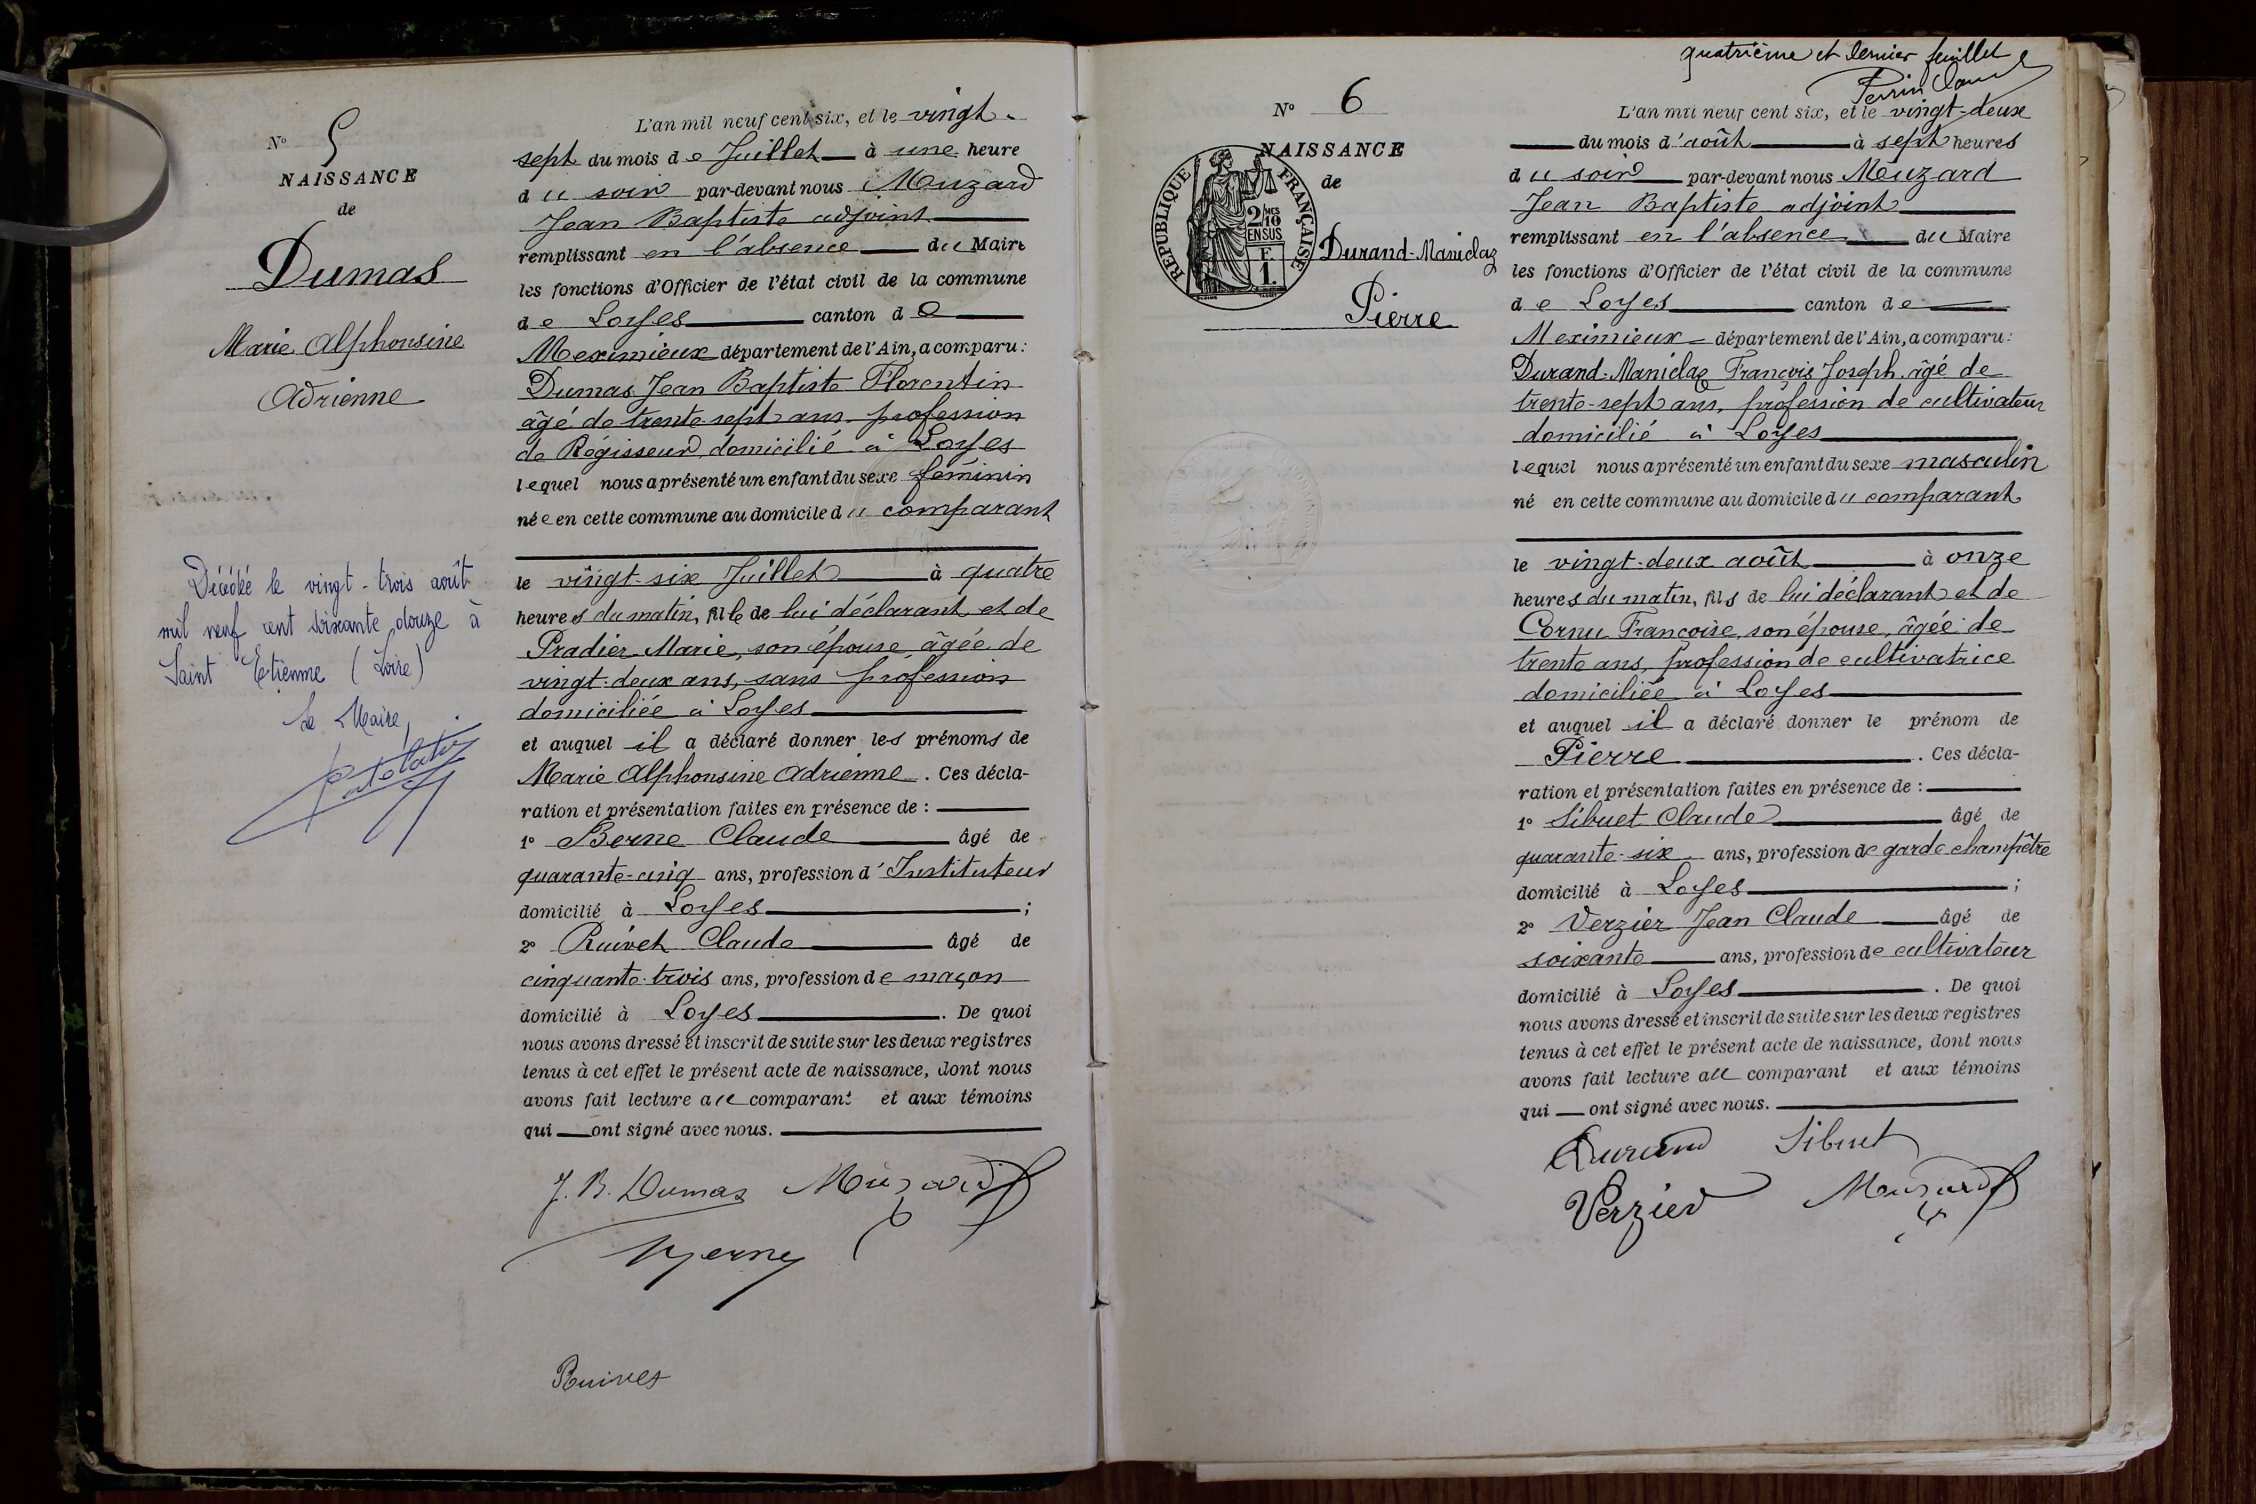 N° 5
NAISSANCE
de
Dumas
Marie Alphonsine
Adrienne
Décédée le vingt-trois août
mil neuf cent soixante douze à
Saint Etienne (Loire)
Le Maire,
L'an mil neuf cent six, et le vingt-
sept du mois de Juillet à une heure
du soir par-devant nous Mouzard
Jean Baptiste adjoint
remplissant en l'absence du Maire
les fonctions d'Officier de l'état civil de la commune
de Loyes canton de
Meximieux département de l'Ain, a comparu :
Dumas Jean Baptiste Florentin
âgé de trente-sept ans profession
de Régisseur domicilié à Loyes
lequel nous a présenté un enfant du sexe féminin
née en cette commune au domicile du comparant
le vingt-six Juillet à quatre
heures du matin, fille de lui déclarant et de
Pradier Marie, son épouse âgée de
vingt-deux ans, sans profession
domiciliée à Loyes
et auquel il a déclaré donner les prénoms de
Marie Alphonsine Adrienne. Ces décla-
ration et présentation faites en présence de :
1° Berne Claude âgé de
quarante-cinq ans, profession d'Instituteur
domicilié à Loyes ;
2° Ruivet Claude âgé de
cinquante-trois ans, profession de maçon
domicilié à Loyes. De quoi
nous avons dressé et inscrit de suite sur les deux registres
tenus à cet effet le présent acte de naissance, dont nous
avons fait lecture au comparant et aux témoins
qui ont signé avec nous.
J. B. Dumas Mouzard
Berne
Ruivet
quatrième et dernier feuillet
Perrin Claude
N° 6
NAISSANCE
de
RÉPUBLIQUE FRANÇAISE
2/10 MES
EN SUS
F
1
Durand-Maniclaz
Pierre
L'an mil neuf cent six, et le vingt-deux
du mois d'août à sept heures
du soir par-devant nous Mouzard
Jean Baptiste adjoint
remplissant en l'absence du Maire
les fonctions d'Officier de l'état civil de la commune
de Loyes canton de
Meximieux département de l'Ain, a comparu :
Durand-Maniclaz François Joseph âgé de
trente-sept ans, profession de cultivateur
domicilié à Loyes
lequel nous a présenté un enfant du sexe masculin
né en cette commune au domicile du comparant
le vingt-deux août à onze
heures du matin, fils de lui déclarant et de
Cornu Françoise, son épouse, âgée de
trente ans, profession de cultivatrice
domiciliée à Loyes
et auquel il a déclaré donner le prénom de
Pierre. Ces décla-
ration et présentation faites en présence de :
1° Sibuet Claude âgé de
quarante-six ans, profession de garde champêtre
domicilié à Loyes ;
2° Verzier Jean Claude âgé de
soixante ans, profession de cultivateur
domicilié à Loyes. De quoi
nous avons dressé et inscrit de suite sur les deux registres
tenus à cet effet le présent acte de naissance, dont nous
avons fait lecture au comparant et aux témoins
qui ont signé avec nous.
Durand Sibuet
Verzier Mouzard